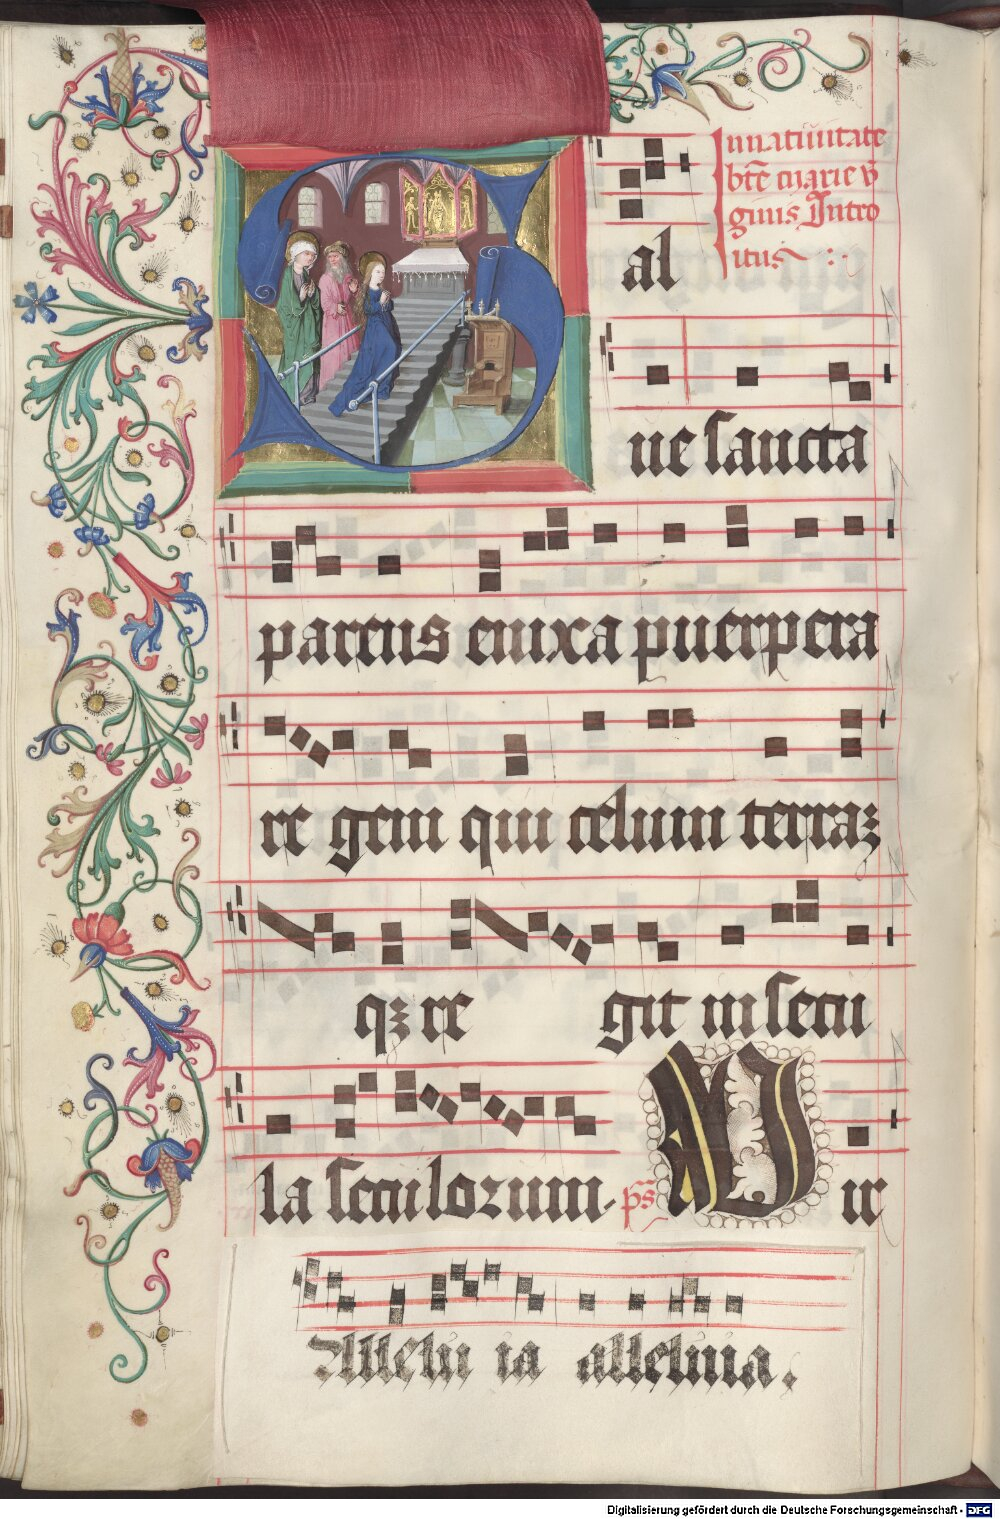 In natiuitate
bte marie v
ginis Intro
itus
Sal
ue sancta
parens enixa puerpera
regem qui celum terraz
qz re git in secu
la seculorum. ps Vir
Allelu ia alleluia.
Digitalisierung gefördert durch die Deutsche Forschungsgemeinschaft - DFG